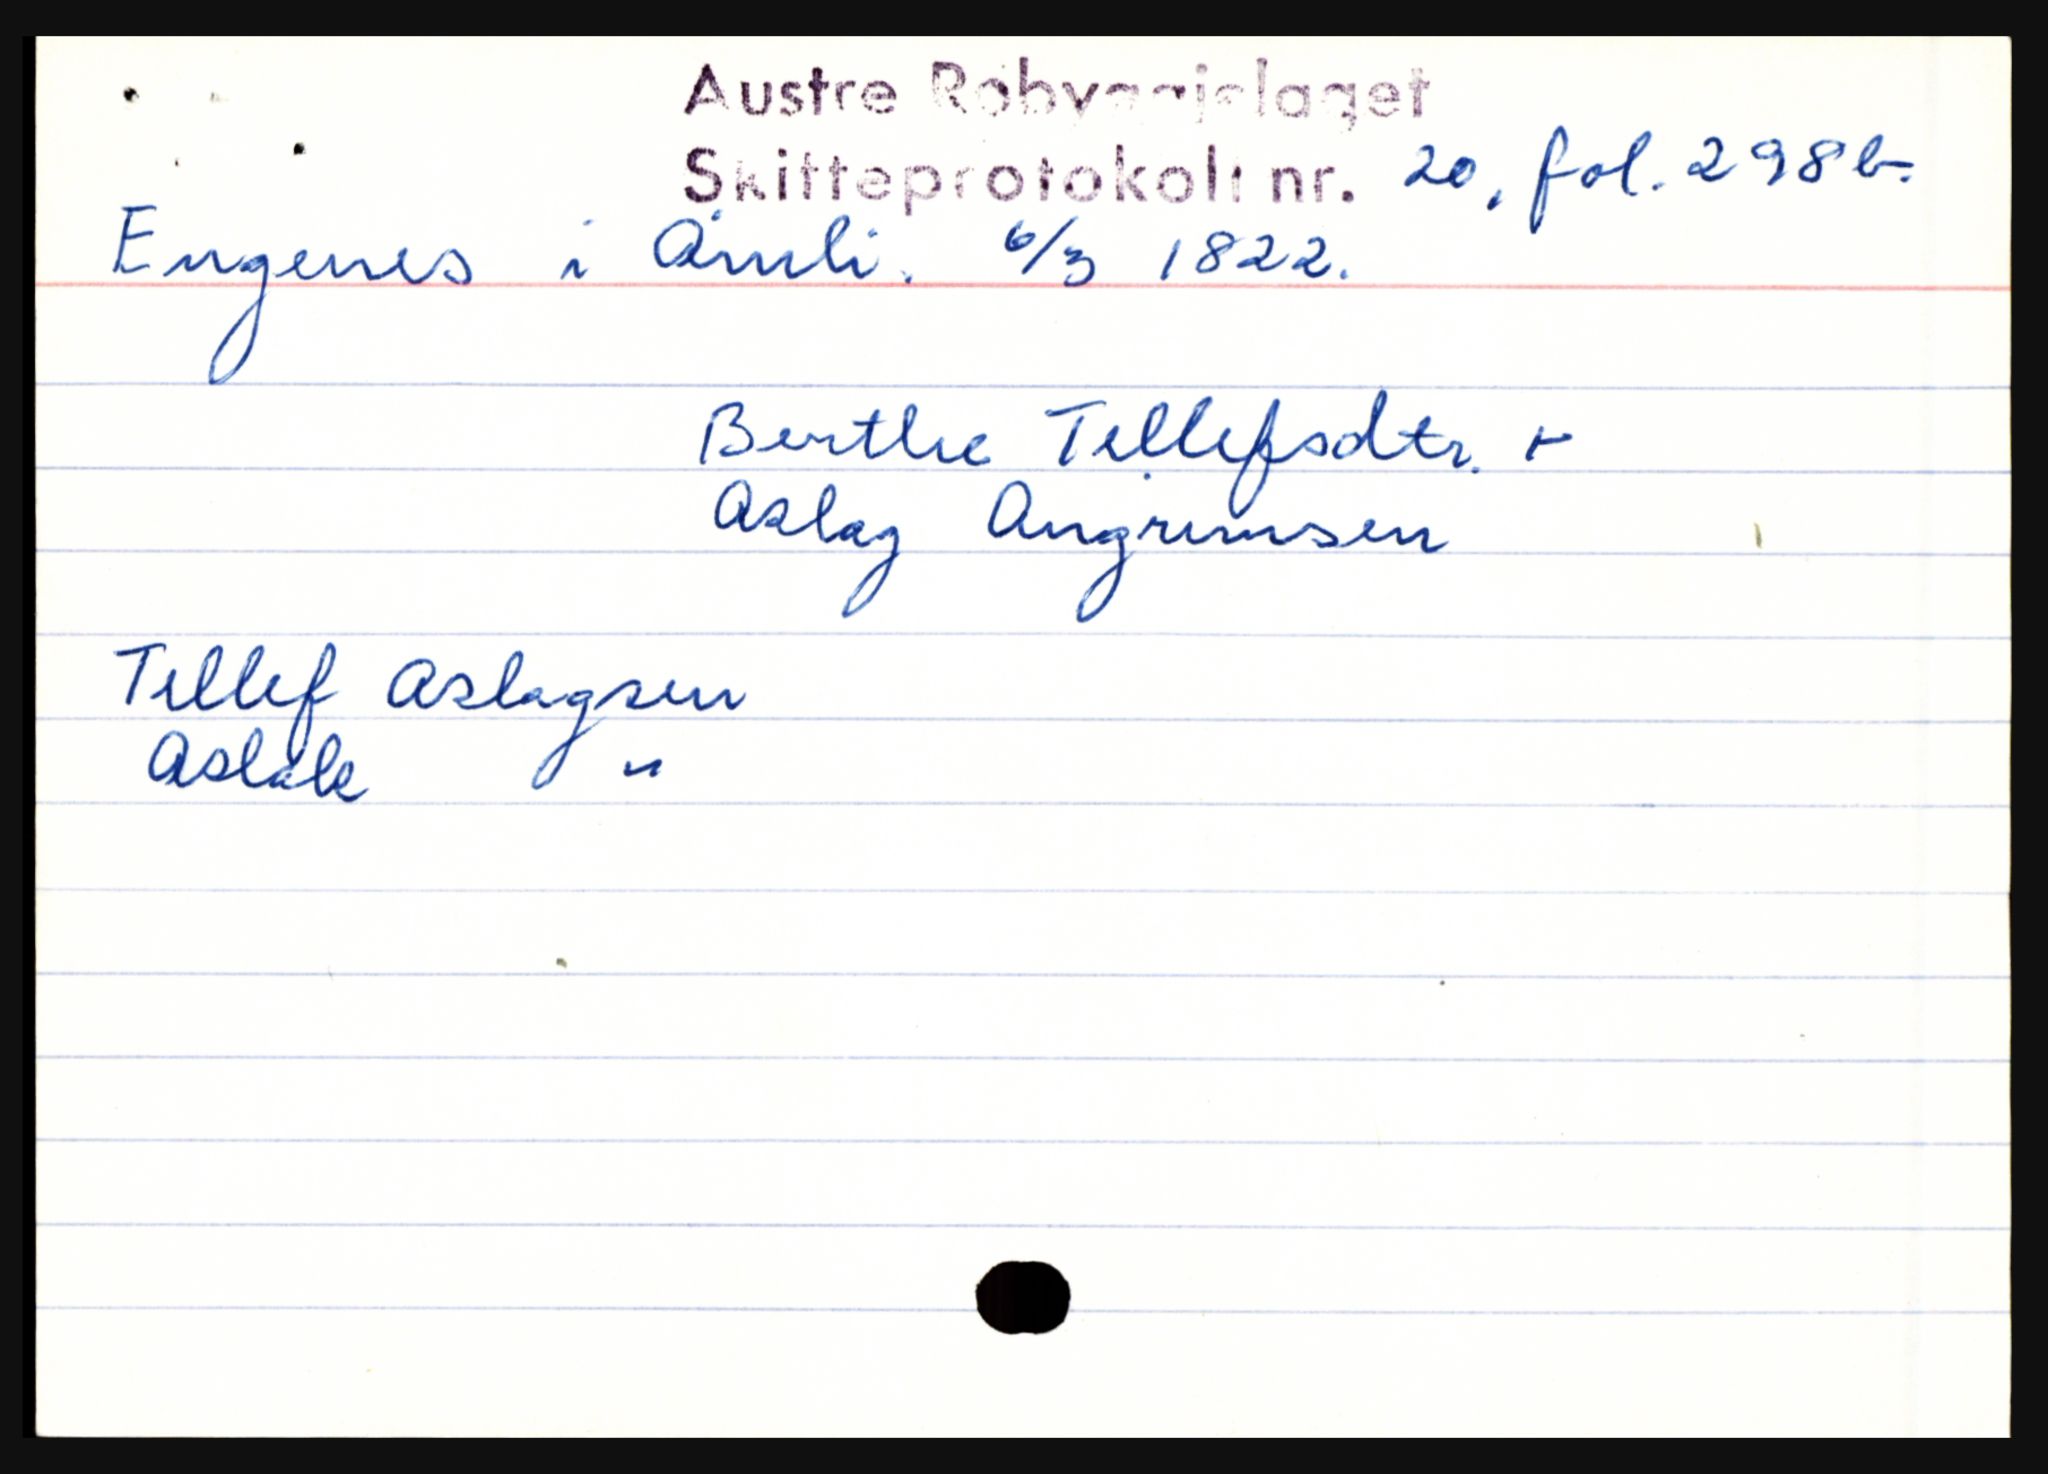 Austre Robyggjelaget
Skifteprotokoll nr. 20, fol. 298b.
Engenes i Åmli. 6/3 1822.
Berthe Tellefsdtr. +
Aslag Angrimsen
Tellef Aslagsen
Aslak "